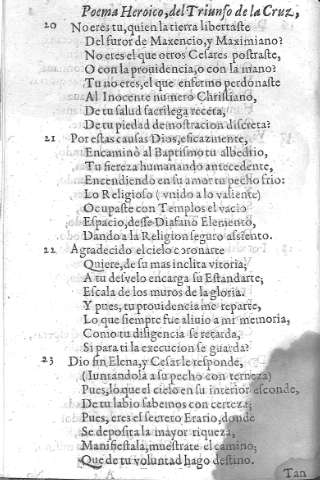 Poema Heroico, del Triunfo de la Cruz,
20 No eres tu, quien la tierra libertaste
Del furor de Maxencio, y Maximiano?
No eres el que otros Cesares postraste,
O con la prouidencia, o con la mano?
Tu no eres, el que enfermo perdonaste
Al Inocente numero Christiano,
De tu salud sacrilega recera,
De tu piedad demostracion discreta?
21 Por estas causas Dios, eficazmente,
Encaminò al Baptismo tu albedrio,
Tu fiereza humanando antecedente,
Encendiendo en su amor tu pecho frio:
Lo Religioso (vnido a lo valiente)
Ocupaste con Templos el vacio
Espacio, desse Diafano Elemento,
Dando a la Religion seguro assiento.
22 Agradecido el cielo coronarte
Quiere, de su mas inclita vitoria;
A tu desvelo encarga su Estandarte;
Escala de los muros de la gloria.
Y pues, tu prouidencia me reparte,
Lo que siempre fue aliuio a mi memoria,
Como tu diligencia se retarda,
Si para ti la execucion se guarda?
23 Dio fin Elena, y Cesar le responde,
(Iuntandola a su pecho con terneza)
Pues, lo que el cielo en su interior esconde,
De tu labio sabemos con certeza;
Pues, eres el secreto Erario, donde
Se deposita la mayor riqueza,
Manifiestala, muestrate el camino;
Que de tu voluntad hago destino.
Tan